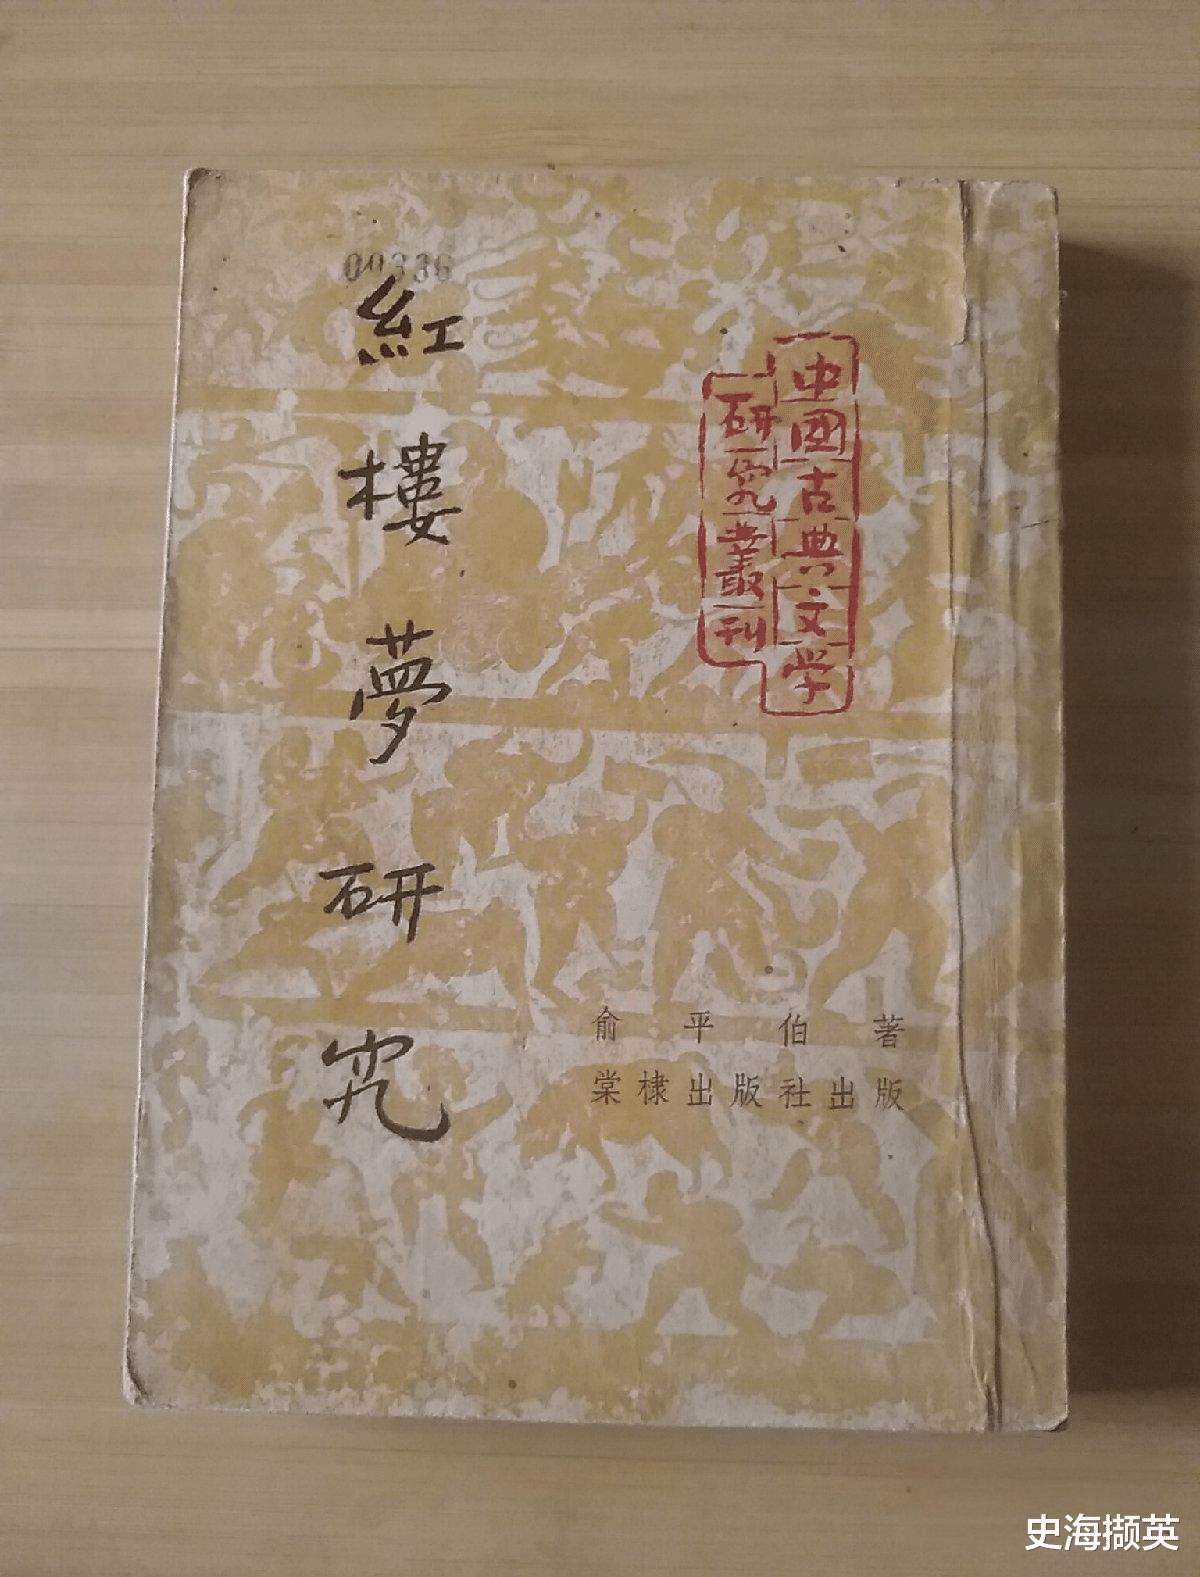 00336
紅樓夢研究
中國古典文学
研究叢刊
俞平伯著
棠棣出版社出版
史海撷英